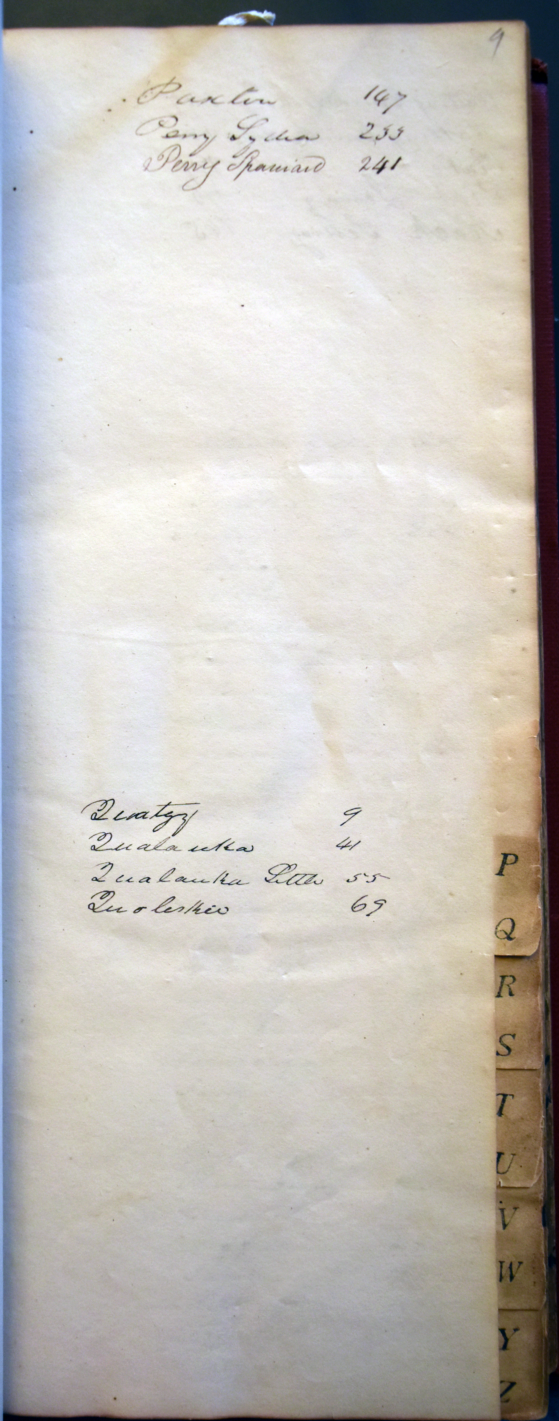 9
Paxton 147
Perry Lydia 233
Perry Spaniard 241
Quatyy 9
Qualauka 41
Qualauka Little 55
Quoleskee 69
P
Q
R
S
T
U
V
W
Y
Z